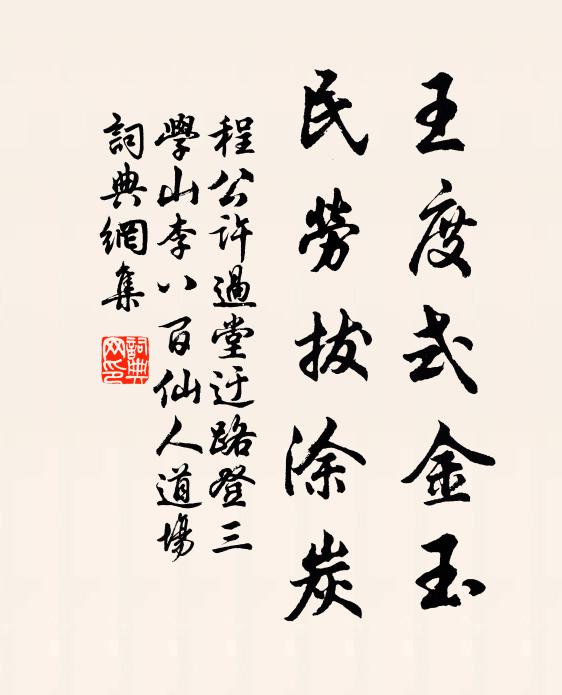 王度式金玉
民勞拔涂炭
程公許過堂迂路登三
學山李八百仙人道場
詞典網集
詞典
网印